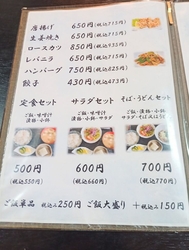 唐揚げ 650円(税込715円)
生姜焼き 650円(税込715円)
ロースカツ 850円(税込935円)
レバニラ 650円(税込715円)
ハンバーグ 750円(税込825円)
餃子 430円(税込473円)
定食セット サラダセット そば・うどんセット
ご飯・味噌汁 ご飯・味噌汁 ご飯・小鉢
漬物・小鉢 漬物・小鉢・サラダ
500円 600円 700円
(税込550円) (税込660円) (税込770円)
ご飯単品 税込250円 ご飯大盛り +税込150円